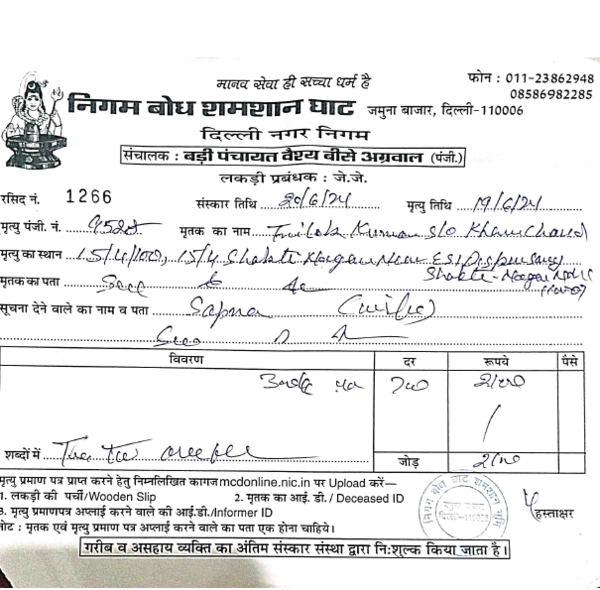 मानव सेवा ही सच्चा धर्म है
फोन : 011-23862948
08586982285
निगम बोध शमशान घाट जमुना बाजार, दिल्ली-110006
दिल्ली नगर निगम
संचालक : बड़ी पंचायत वैश्य बीसे अग्रवाल (पंजी.)
लकड़ी प्रबंधक : जे.जे.
रसिद नं. 1266 संस्कार तिथि 20/6/24 मृत्यु तिथि 19/6/24
मृत्यु पंजी. नं. मृतक का नाम Trilok Kumar S/o Khem Chand
मृत्यु का स्थान 15/4 Shakti Nagar Near ESI Dispensary
Shakti-Nagar
मृतक का पता
सूचना देने वाले का नाम व पता Sapna (wife)
विवरण दर रूपये पैसे
700
शब्दों में
जोड़
मृत्यु प्रमाण पत्र प्राप्त करने हेतु निम्नलिखित कागज mcdonline.nic.in पर Upload करें—
1. लकड़ी की पर्ची/Wooden Slip 2. मृतक का आई. डी. / Deceased ID
3. मृत्यु प्रमाणपत्र अप्लाई करने वाले की आई.डी./Informer ID
नोट : मृतक एवं मृत्यु प्रमाण पत्र अप्लाई करने वाले का पता एक होना चाहिये।
हस्ताक्षर
निगम बोध घाट शमशान भूमि
जमुना बाजार
दिल्ली-110006
गरीब व असहाय व्यक्ति का अंतिम संस्कार संस्था द्वारा नि:शुल्क किया जाता है।